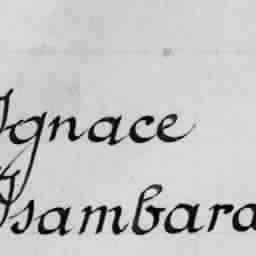 Ignace
Isambara